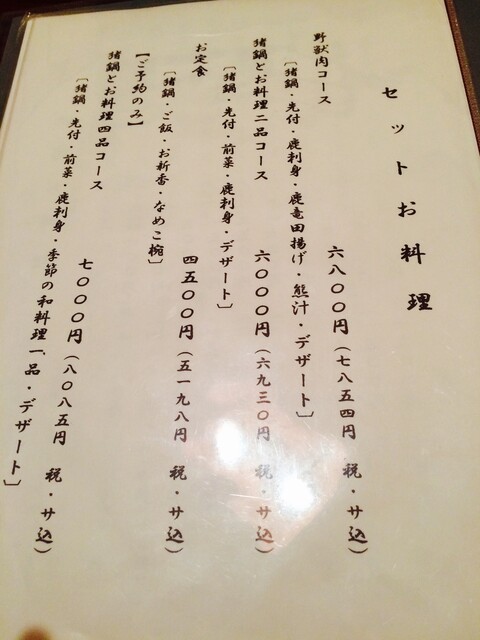 セットお料理
野獣肉コース
六八〇〇円（七八五四円 税・サ込）
〔猪鍋・先付・鹿刺身・鹿竜田揚げ・熊汁・デザート〕
猪鍋とお料理二品コース
六〇〇〇円（六九三〇円 税・サ込）
〔猪鍋・先付・前菜・鹿刺身・デザート〕
お定食
四五〇〇円（五一九八円 税・サ込）
〔猪鍋・ご飯・お新香・なめこ椀〕
【ご予約のみ】
猪鍋とお料理四品コース
七〇〇〇円（八〇八五円 税・サ込）
〔猪鍋・先付・前菜・鹿刺身・季節の和料理一品・デザート〕